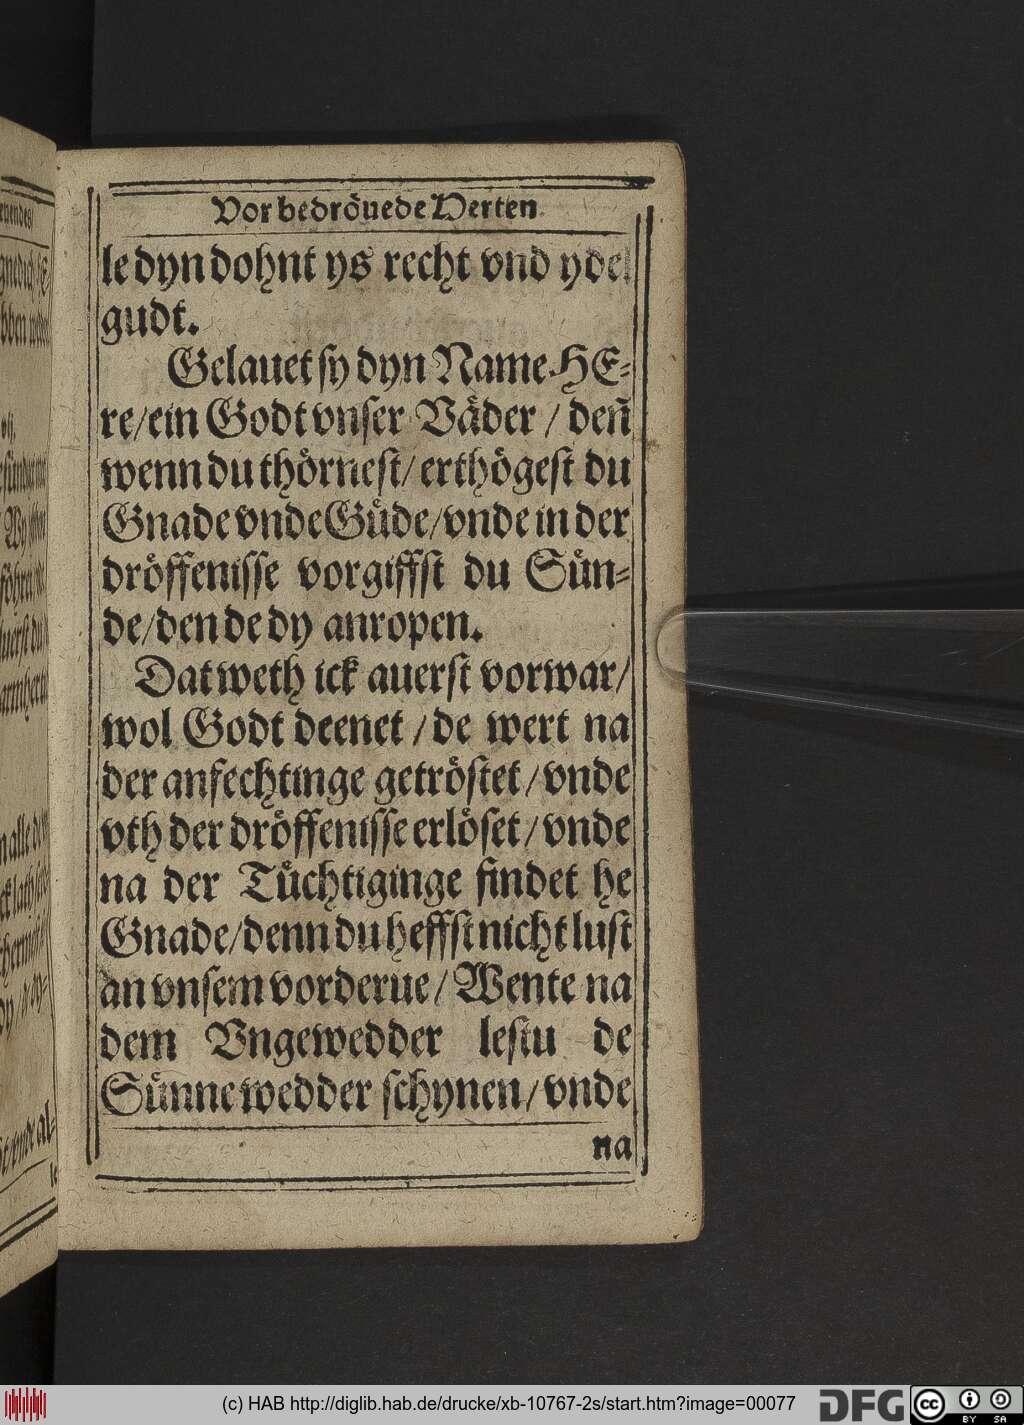 Vor bedröuede Herten
le dyn dohnt ys recht vnd ydel
gudt.
Gelauet sy dyn Name HE-
re/ein Godt vnser Väder / deñ
wenn du thörnest/ erthögest du
Gnade vnde Güde/vnde in der
dröffenisse vorgiffst du Sün-
de/den de dy anropen.
Dat weth ick auerst vorwar/
wol Godt deenet / de wert na
der anfechtinge getröstet / vnde
vth der dröffenisse erlöset / vnde
na der Tüchtiginge findet he
Gnade/denn du heffst nicht lust
an vnsem vorderue / Wente na
dem Vngewedder lestu de
Sünne wedder schynen/vnde
na
(c) HAB http://diglib.hab.de/drucke/xb-10767-2s/start.htm?image=00077
DFG
cc
BY SA